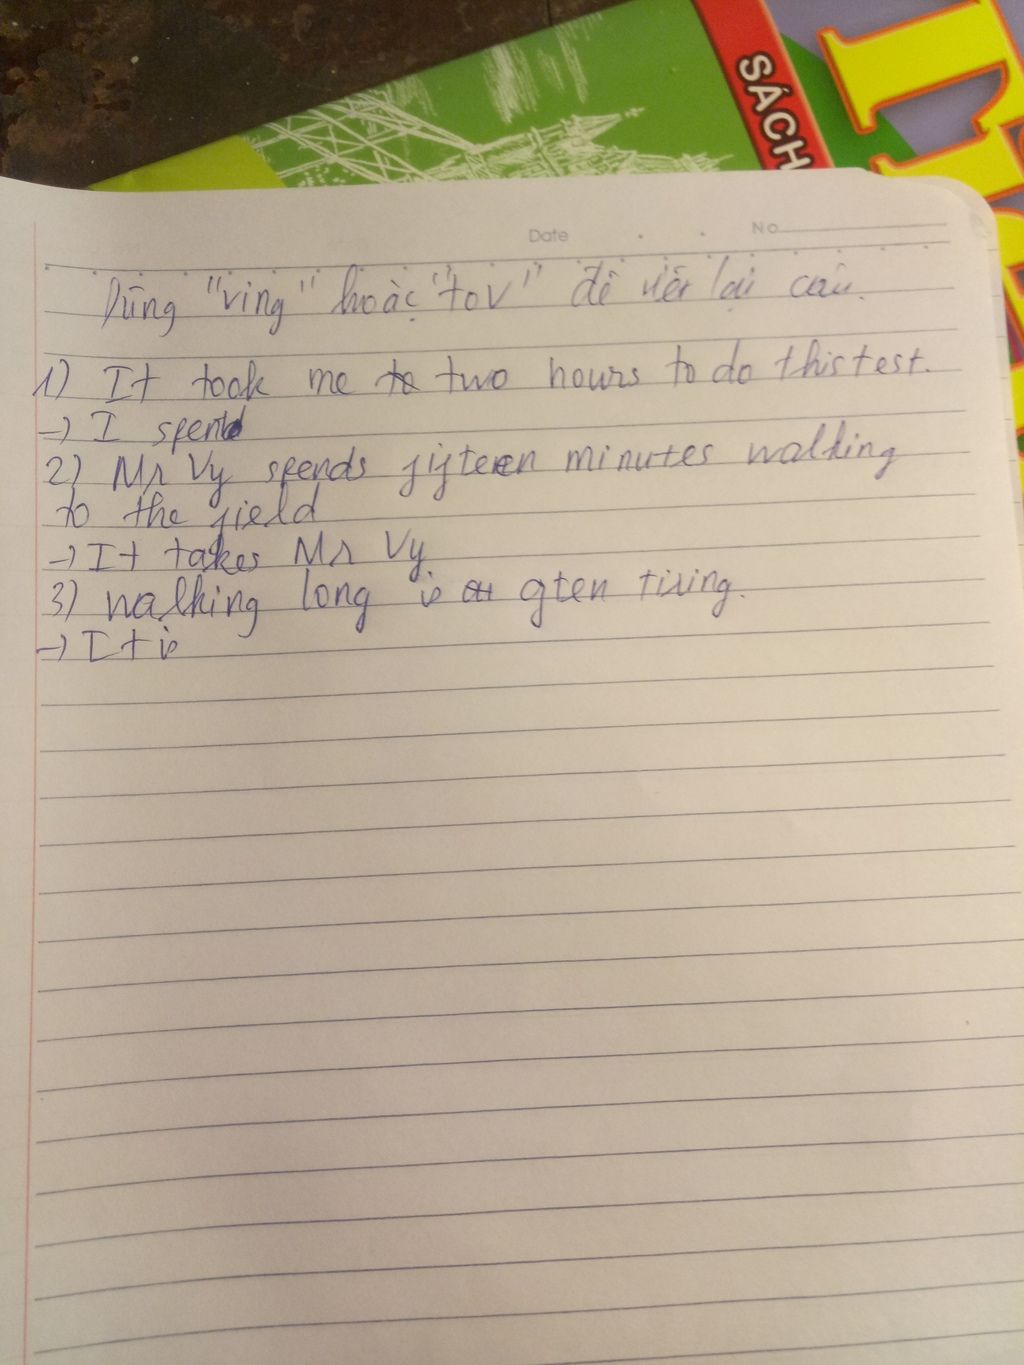 SÁCH
Date No
Dùng "ving" hoặc "to V" để viết lại câu.
1) It took me two hours to do this test.
→ I spent
2) Mr Vy spends fifteen minutes walking
to the field
→ It takes Mr Vy
3) walking long is often tiring.
→ It is